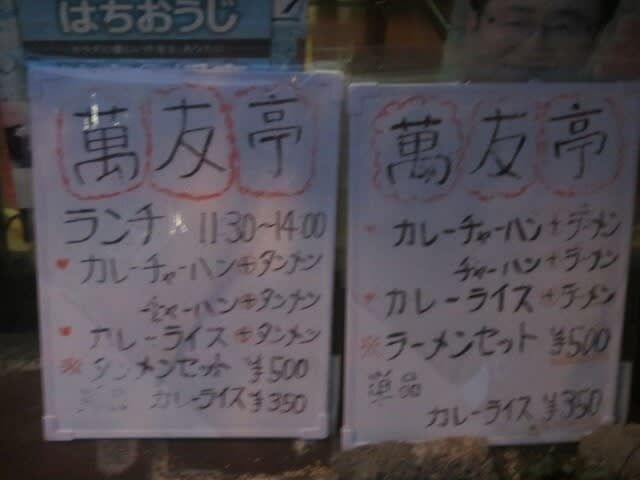 はちおうじ
萬友亭
ランチ 11:30~14:00
カレーチャーハン+タンメン
チャーハン+タンメン
カレーライス+タンメン
※タンメンセット ¥500
単品 カレーライス ¥350
萬友亭
カレーチャーハン+ラーメン
チャーハン+ラーメン
カレーライス+ラーメン
※ラーメンセット ¥500
単品
カレーライス ¥350